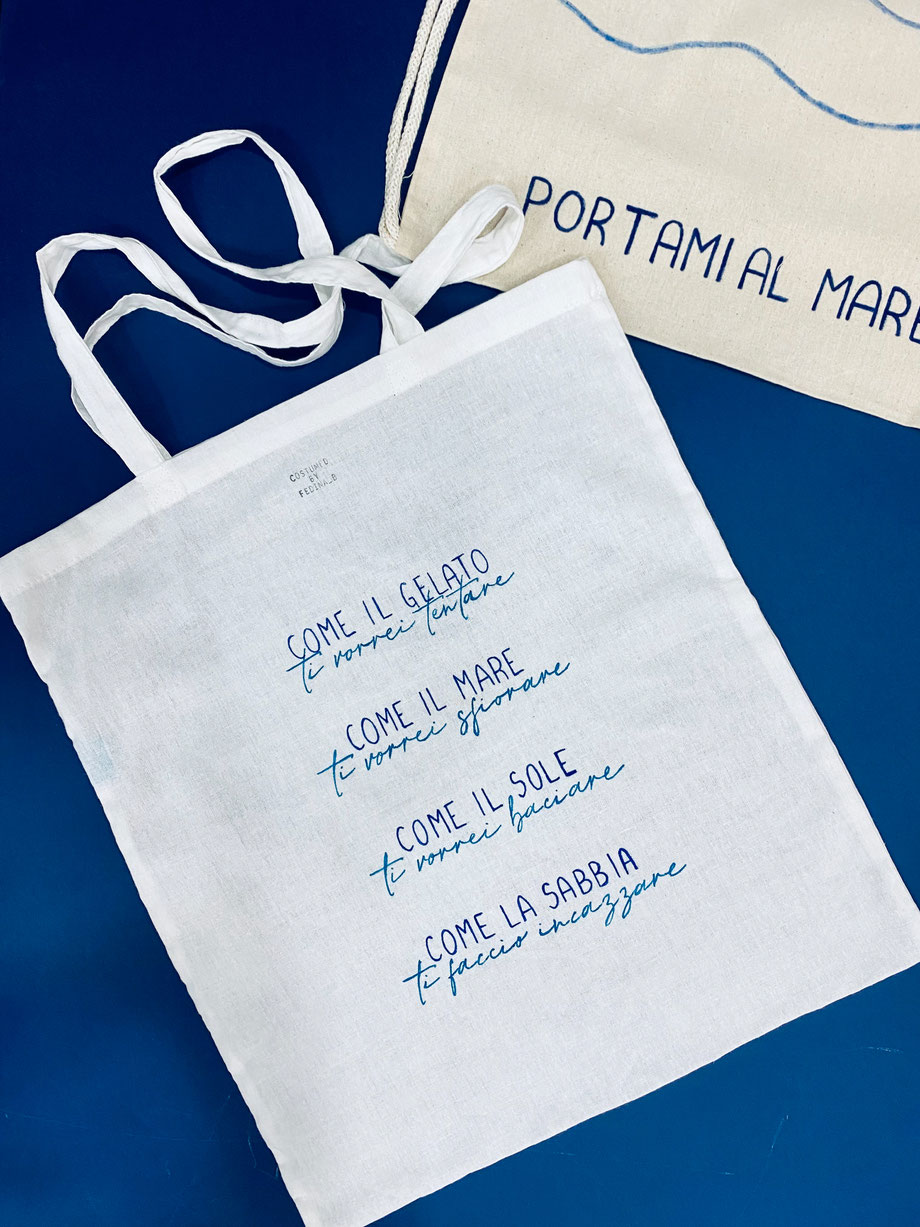 PORTAMI AL MARE
COSTUMED
BY
FEDINA_B
COME IL GELATO
ti vorrei tentare
COME IL MARE
ti vorrei sfiorare
COME IL SOLE
ti vorrei baciare
COME LA SABBIA
ti faccio incazzare